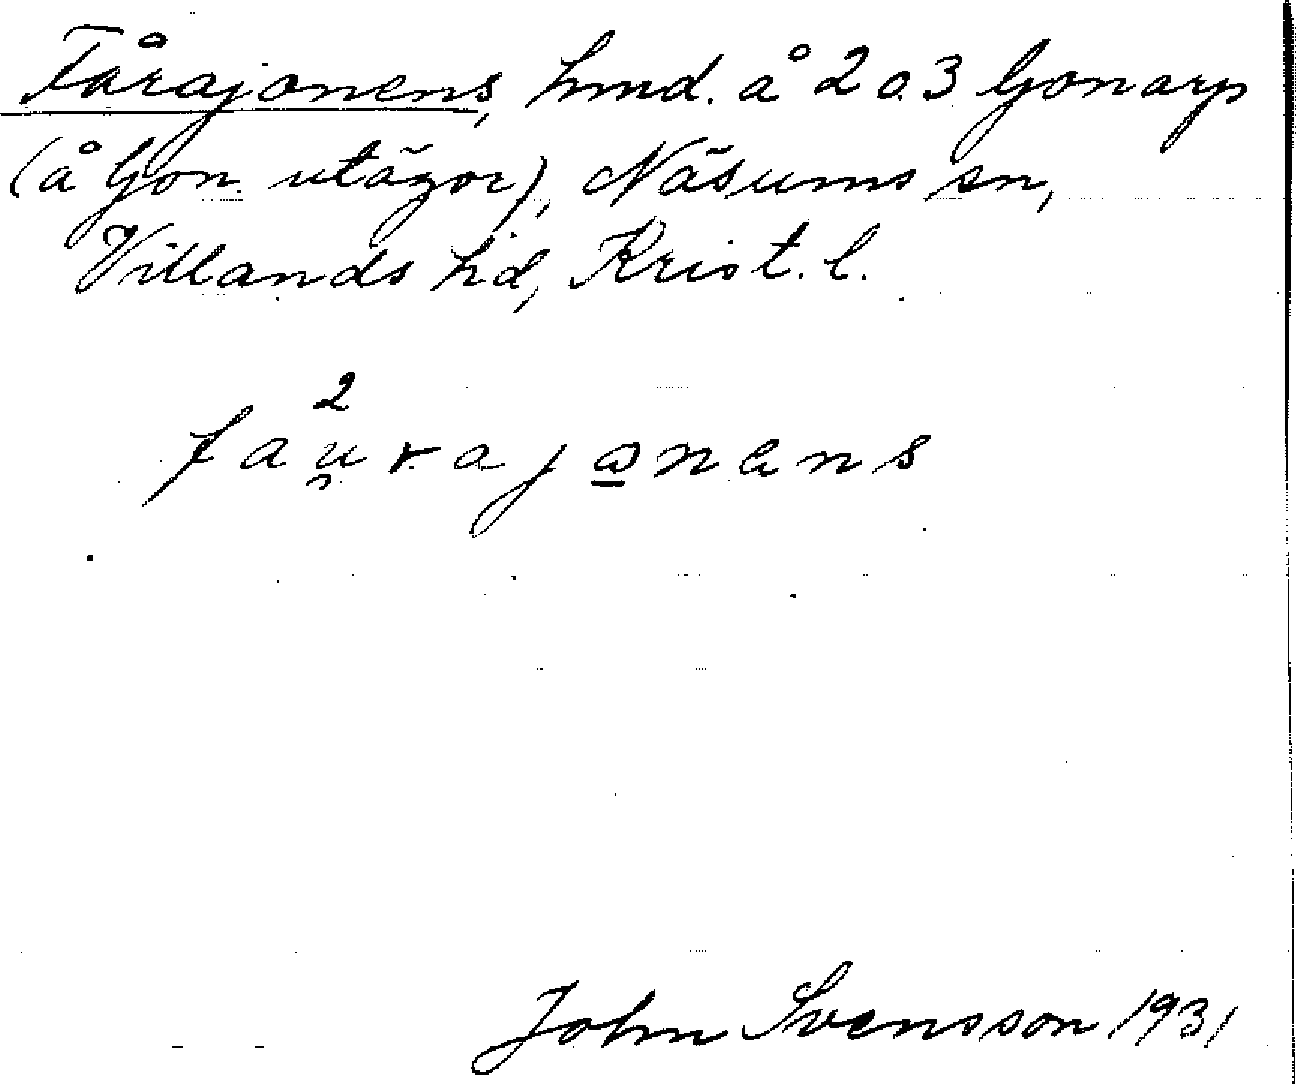 Fårajonens, hmd. å 2 o. 3 Gonarp
(å Gon. utägor), Näsums sn,
Villands hd, Krist. l.
2
fau̯rajɷnens
John Svensson 1931